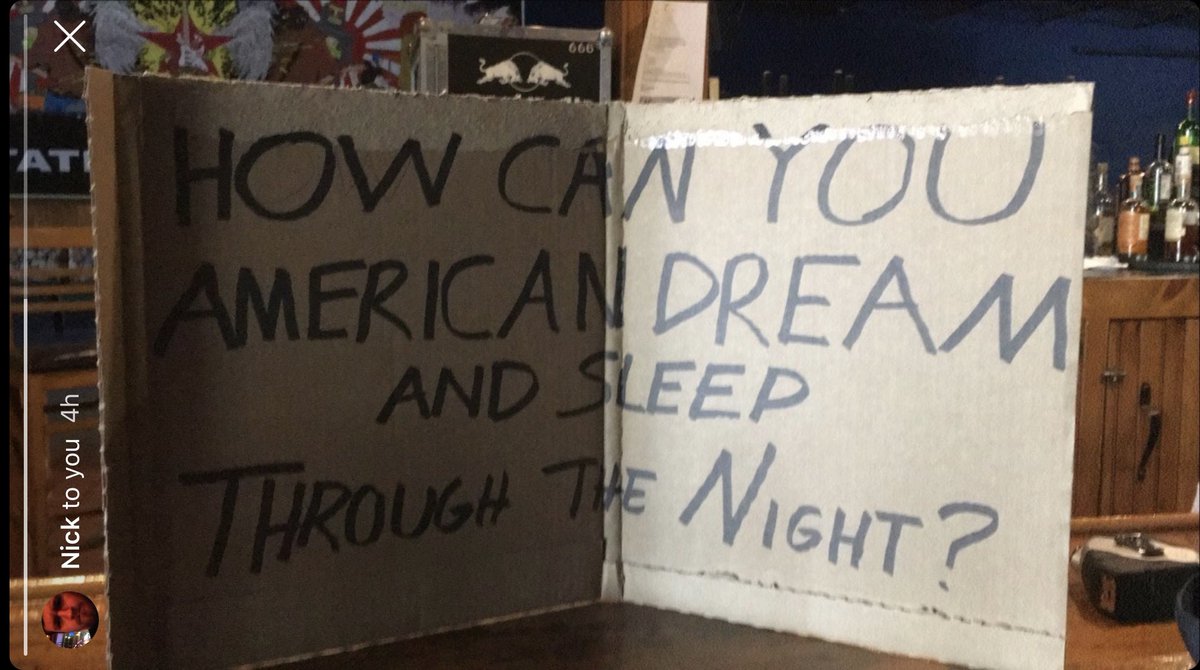 HOW CAN YOU
AMERICAN DREAM
AND SLEEP
THROUGH THE NIGHT?
666
TATE
Nick to you 4h